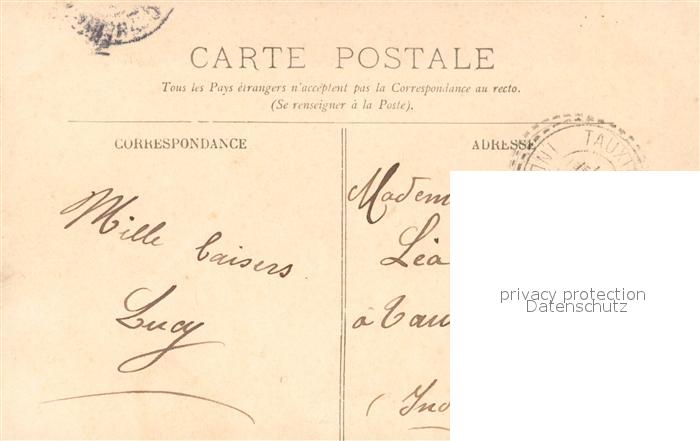 CARTE POSTALE
Tous les Pays étrangers n'acceptent pas la Correspondance au recto.
(Se renseigner à la Poste).
CORRESPONDANCE
Mille baisers
Lucy
ADRESSE
TAUXI
Madem
Léa
à Tau
(Ind
privacy protection
Datenschutz